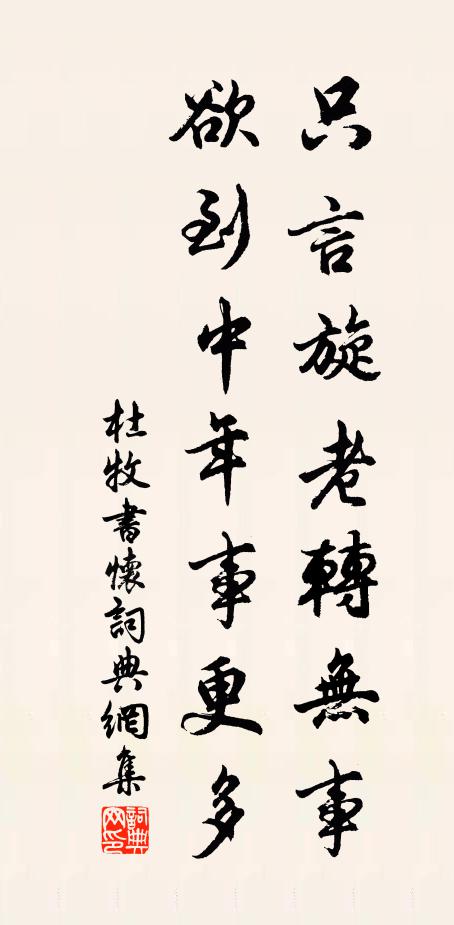 只言旋老轉無事
欲到中年事更多
杜牧書懷詞典網集
詞典网印